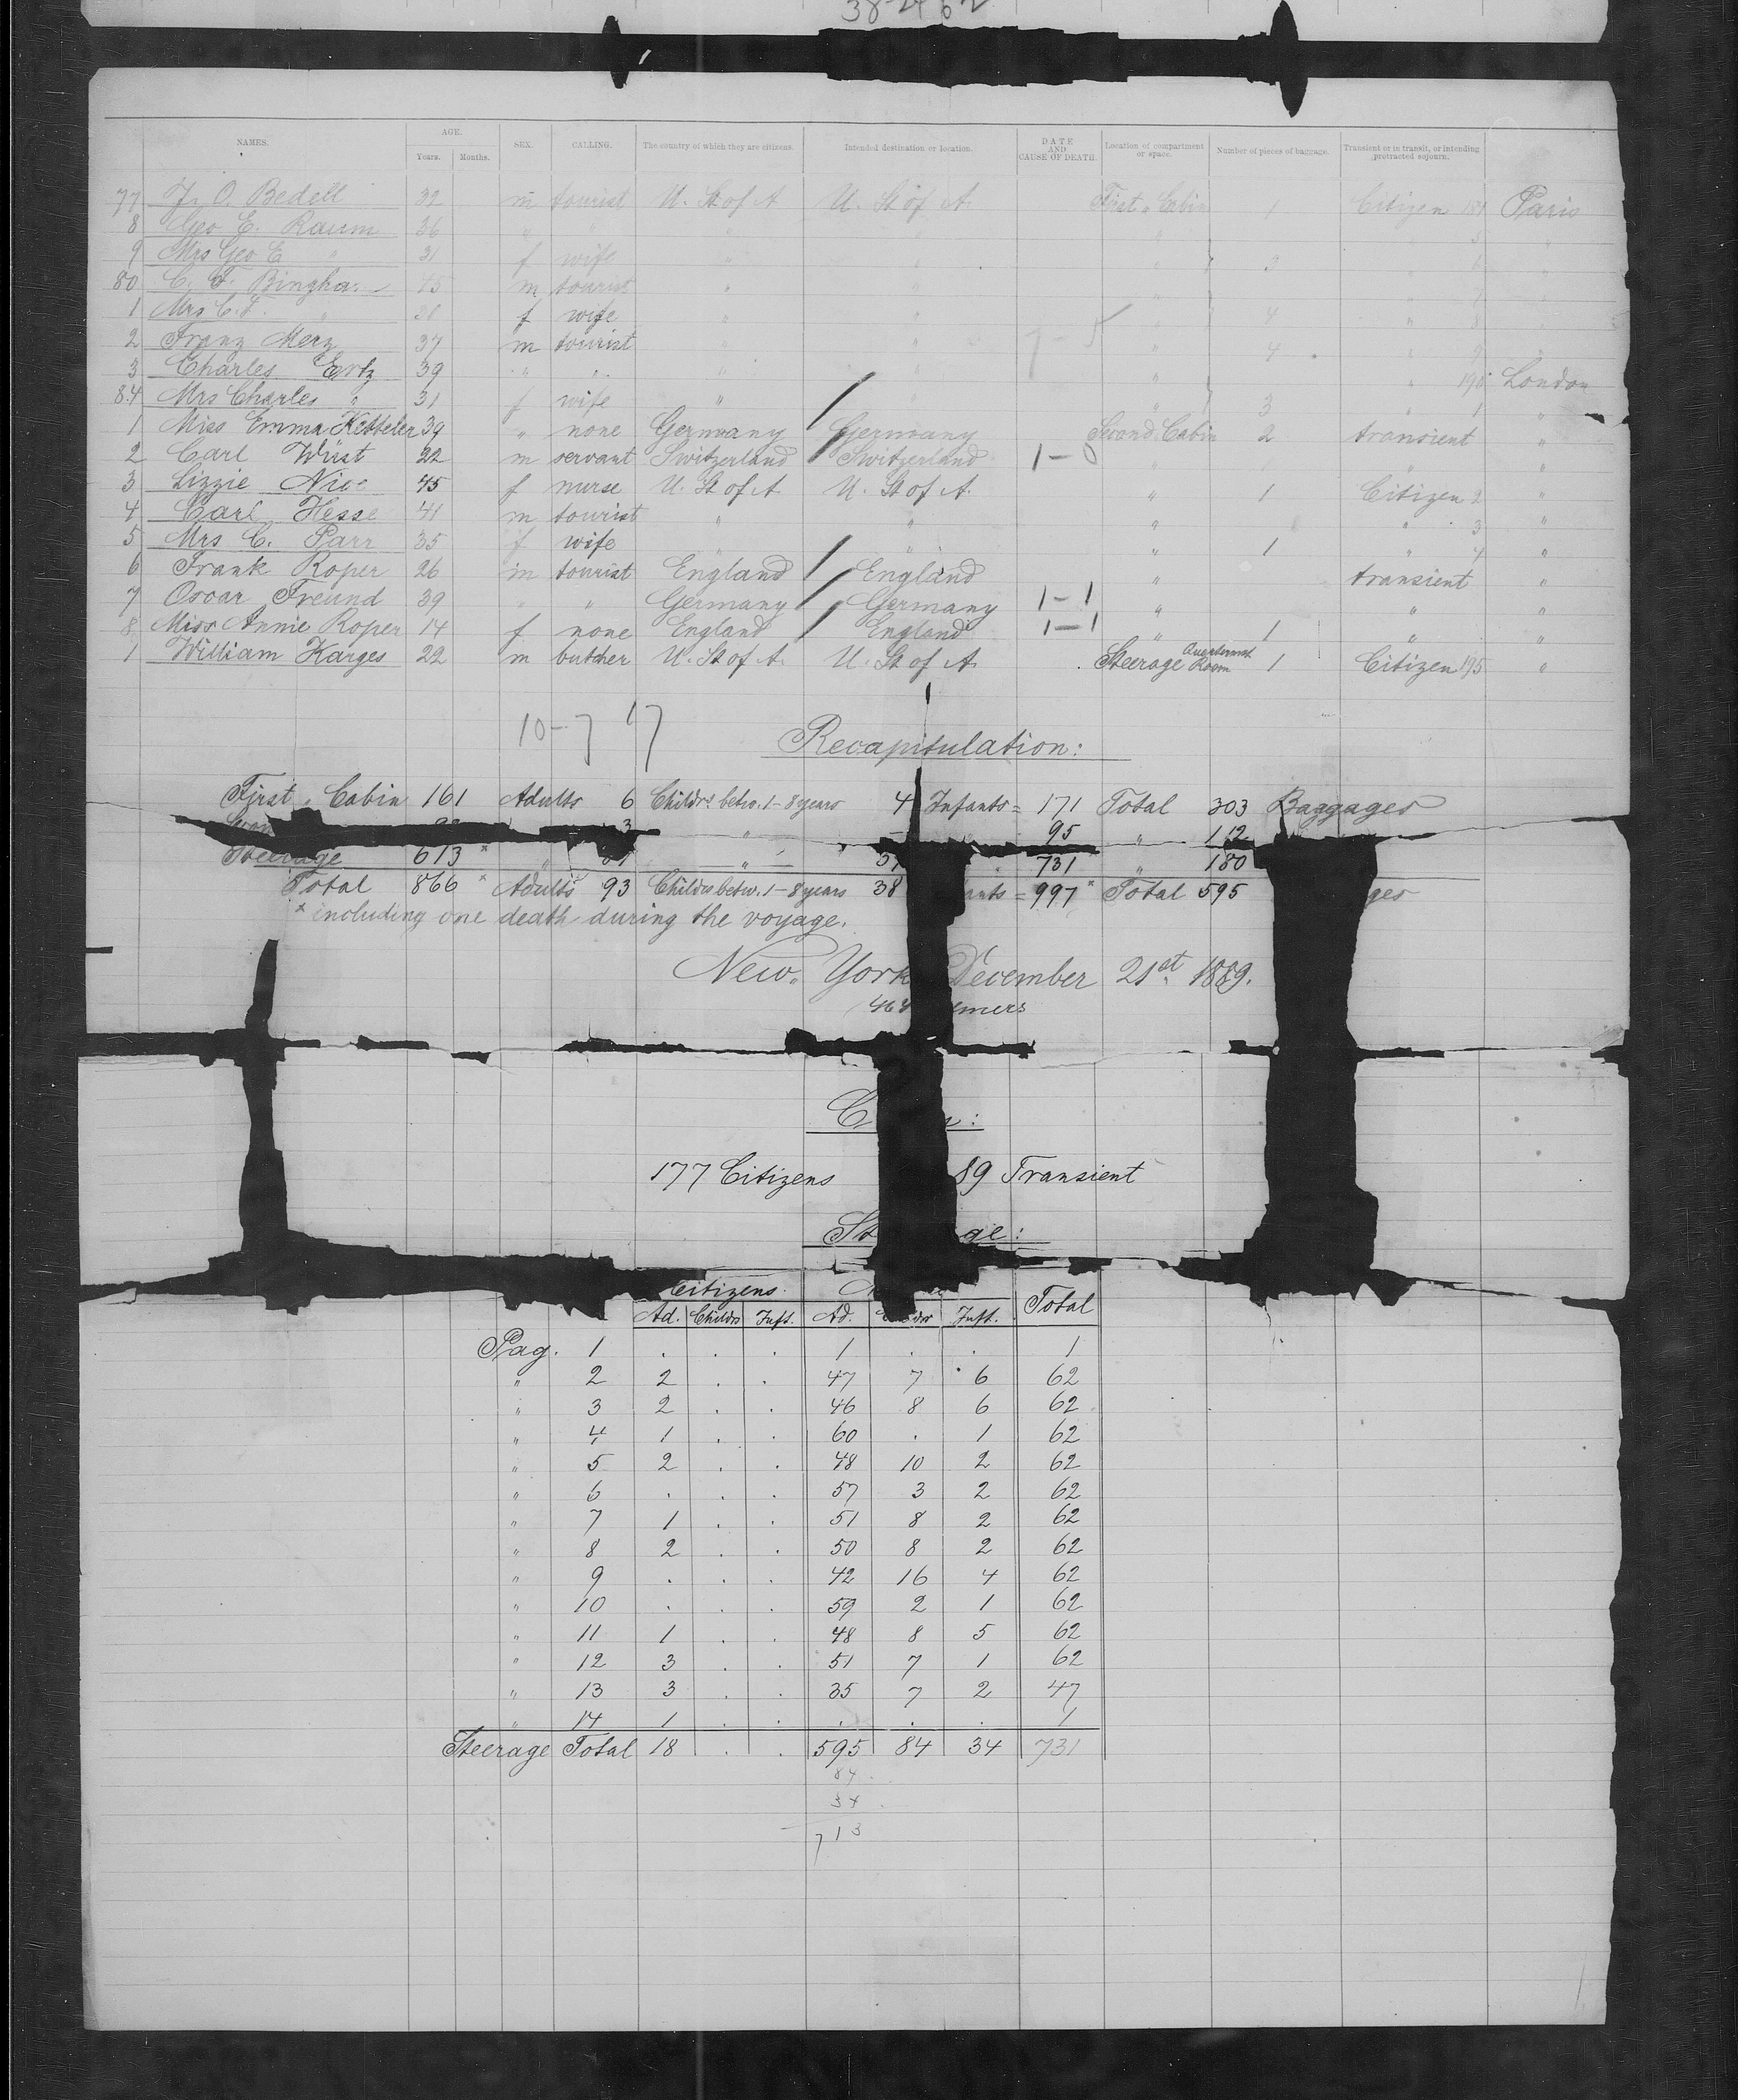 38-2462
NAMES. AGE. Years. Months. SEX. CALLING. The country of which they are citizens. Intended destination or location. DATE AND CAUSE OF DEATH. Location of compartment or space. Number of pieces of baggage. Transient or in transit, or intending protracted sojourn.
77 O. Bedell 32 m tourist U. St of A U. St of A. First " Cabin 1 Citizen 18 Paris
8 Geo E. Raum 36 " " " " " 5 "
9 Mrs Geo E " 31 f wife " " " 3 " "
80 C. F. Bingha 45 m tourist " " " " 7 "
1 Mrs C. F. " f wife " " " 4 " 8 "
2 Franz Merz 37 m tourist " " " 4 " 9 "
3 Charles Ertz 39 " " " " " " 190 London
84 Mrs Charles " 31 f wife " " " 3 " 1 "
1 Miss Emma Ketteler 39 " none Germany Germany Second Cabin 2 transient "
2 Carl Wüst 22 m servant Switzerland Switzerland 1-0 " 1 " "
3 Lizzie Nice 45 f nurse U. St of A. U. St of A. " 1 Citizen 2 "
4 Carl Hesse 41 m tourist " " " " 3 "
5 Mrs C. Parr 35 f wife " " " 1 " 4 "
6 Frank Roper 26 m tourist England England " transient "
7 Oscar Freund 39 " " Germany Germany 1-1 " " "
8 Miss Annie Roper 14 f none England England 1-1 " 1 " "
1 William Karges 22 m butcher U. St of A. U. St of A. Steerage Room 1 Citizen 195 "
10-7 17
Recapitulation:
First " Cabin 161 Adults 6 Childrs betw. 1-8 years 4 Infants = 171 Total 303 Baggages
3 " 95 " 112
Steerage 613 * " " 731 " 180
Total 866 * Adults 93 Childrs betw. 1-8 years 38 ants = 997 * Total 595 ges
* including one death during the voyage.
New " York December 21st 1889.
C :
177 Citizens 89 Transient
St ge:
Citizens. Total
Ad. Childrs Inft. Ad. Inft.
Pag. 1 . . . 1 . . 1
" 2 2 . . 47 7 6 62
" 3 2 . . 46 8 6 62
" 4 1 . . 60 . 1 62
" 5 2 . . 48 10 2 62
" 6 . . . 57 3 2 62
" 7 1 . . 51 8 2 62
" 8 2 . . 50 8 2 62
" 9 . . . 42 16 4 62
" 10 . . . 59 2 1 62
" 11 1 . . 48 8 5 62
" 12 3 . . 51 7 1 62
" 13 3 . . 35 7 2 47
" 14 1 . . . . . 1
Steerage Total 18 . . 595 84 34 731
84
34
713